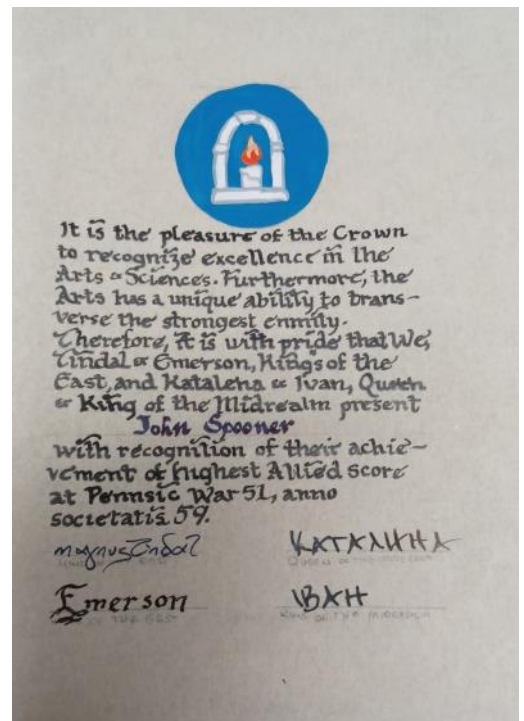 It is the pleasure of the Crown
to recognize excellence in the
Arts & Sciences. Furthermore, the
Arts has a unique ability to trans-
verse the strongest enmity.
Therefore, it is with pride that We,
Tindal & Emerson, Kings of the
East, and Katalena & Ivan, Queen
& King of the Midrealm present
John Spooner
with recognition of their achie-
vement of highest Allied score
at Pennsic War 51, anno
societatis 59.
Magnus Tindal КАТАЛИНА
QUEEN OF THE MIDREALM
Emerson ІВАН
OF THE EAST KING OF THE MIDREALM